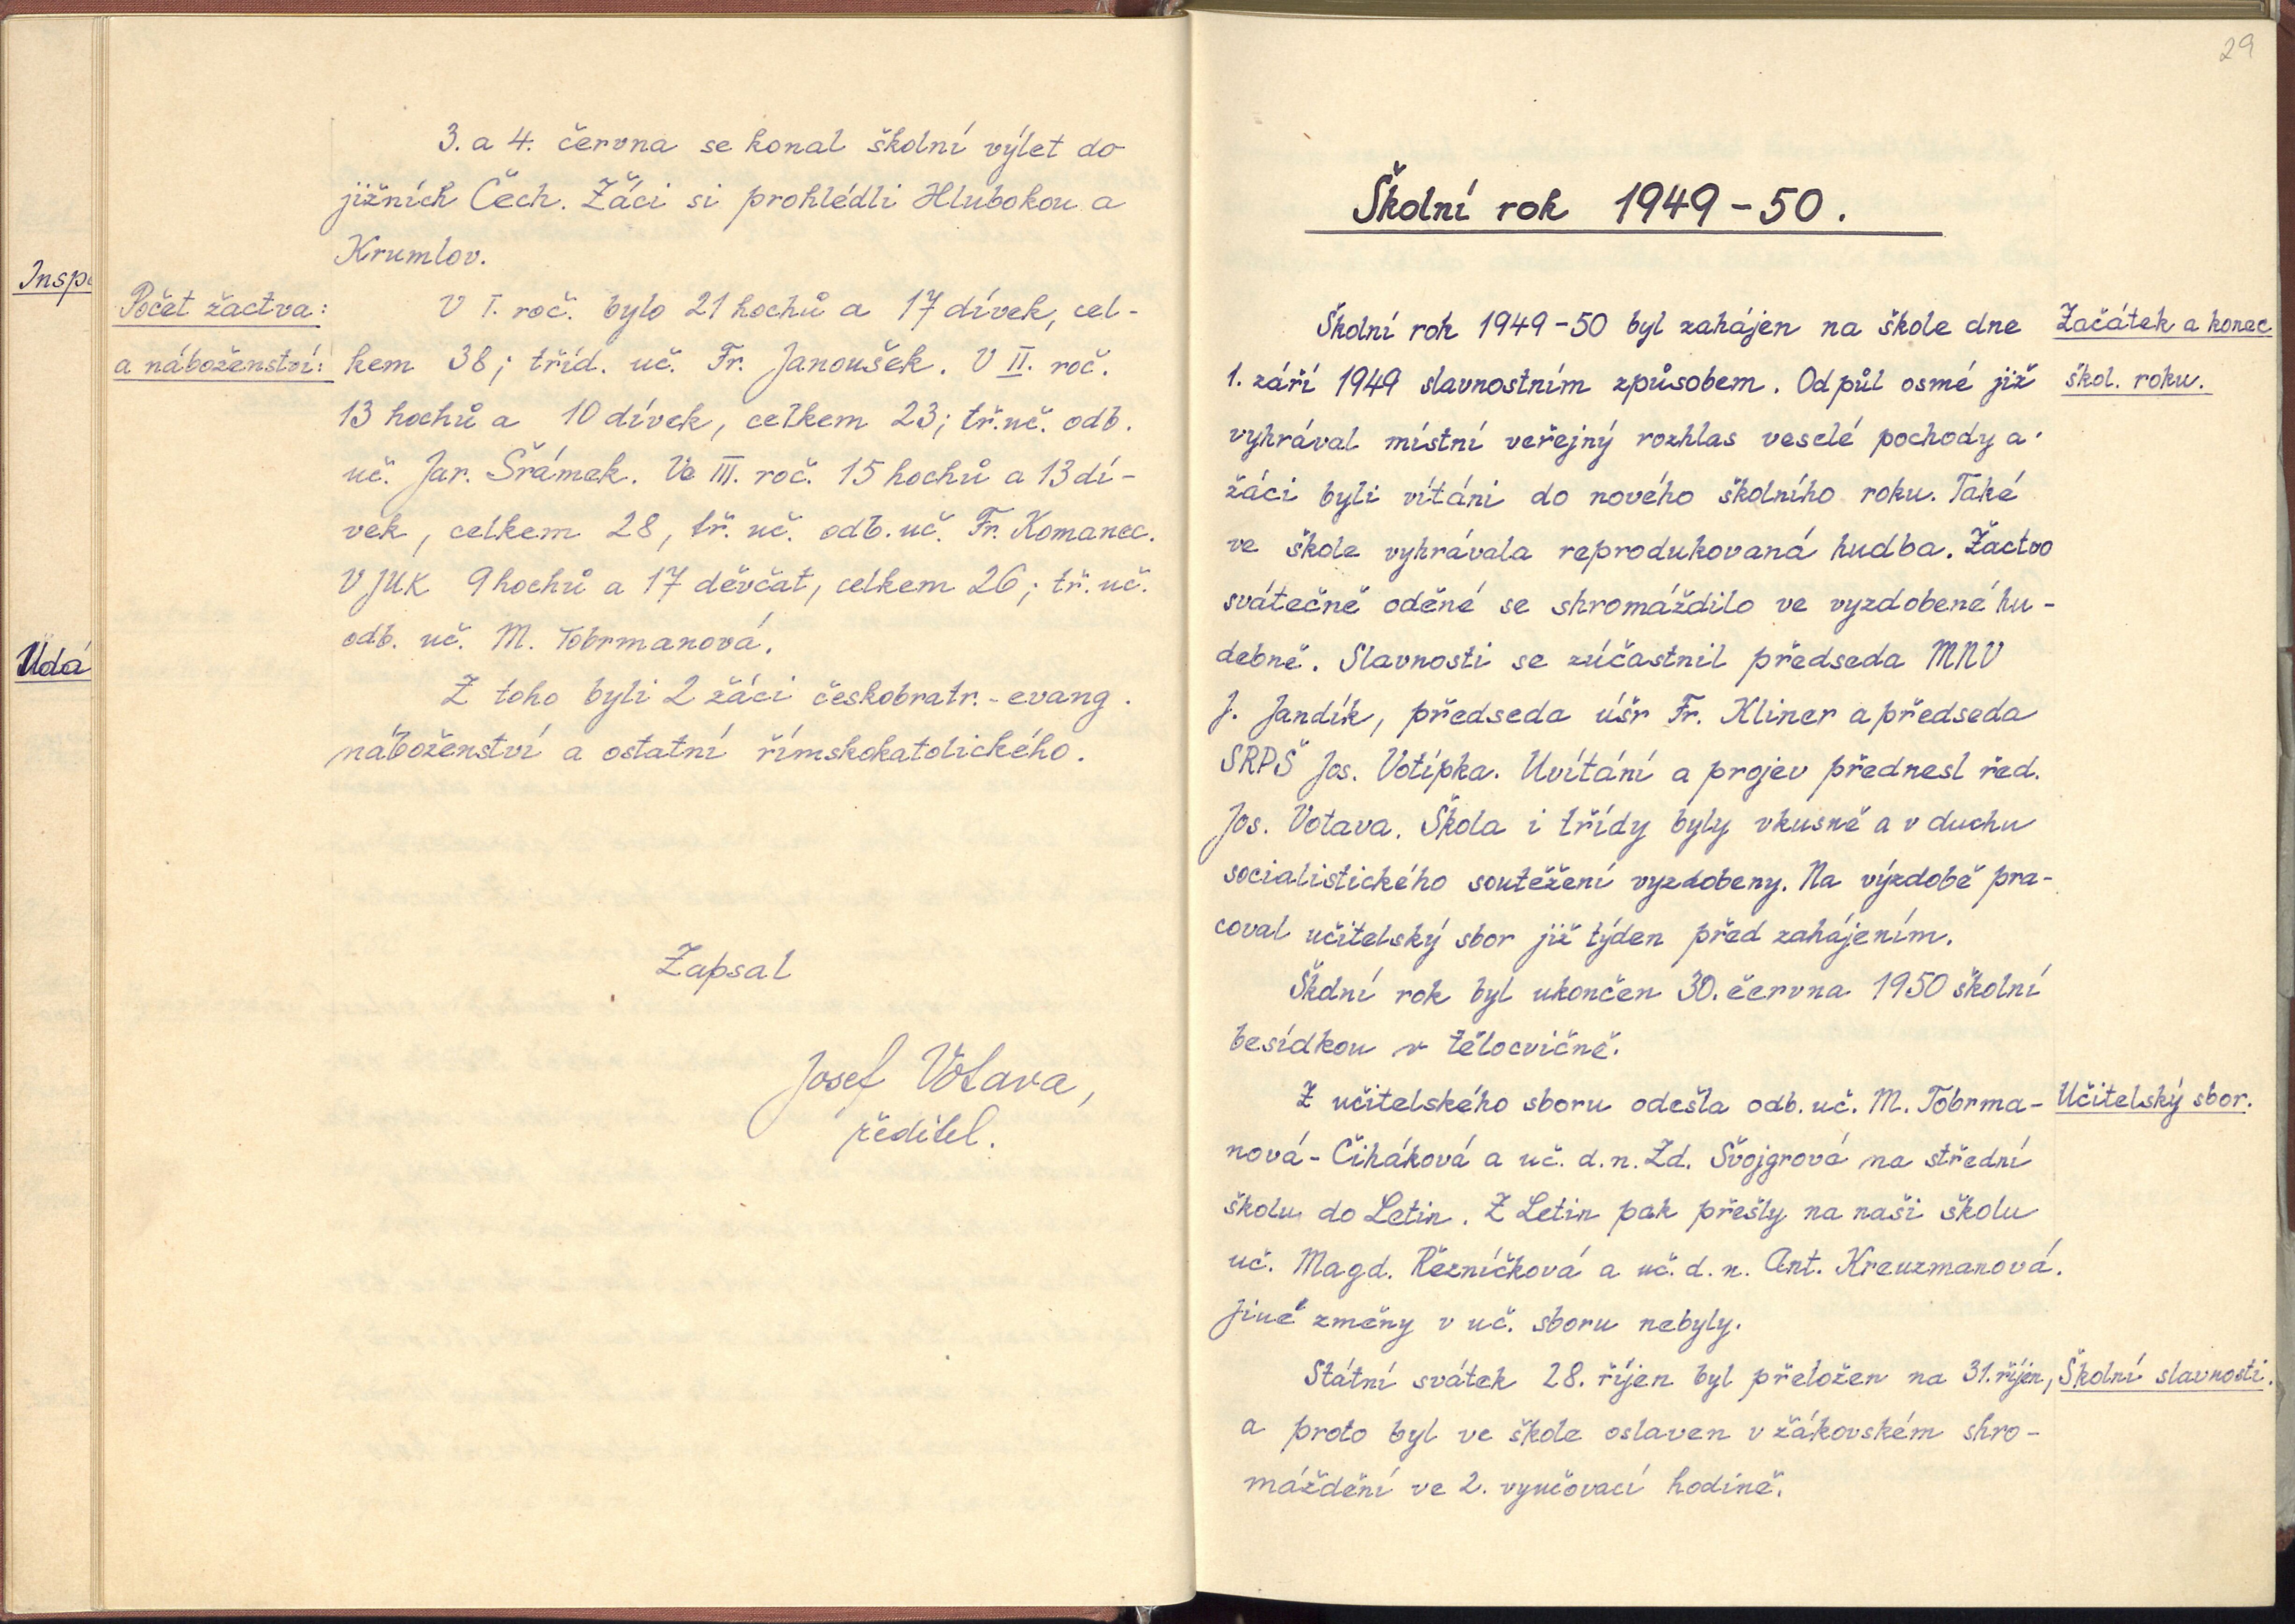 Insp
Udá
3. a 4. června se konal školní výlet do
jižních Čech. Žáci si prohlédli Hlubokou a
Krumlov.
Počet žactva:
a náboženství:
V I. roč. bylo 21 hochů a 17 dívek, cel-
kem 38; tříd. uč. Fr. Janoušek. V II. roč.
13 hochů a 10 dívek, celkem 23; tř. uč. odb.
uč. Jar. Šrámek. Ve III. roč. 15 hochů a 13 dí-
vek, celkem 28, tř. uč. odb. uč. Fr. Komanec.
V JUK 9 hochů a 17 děvčat, celkem 26; tř. uč.
odb. uč. M. Tobrmanová.
Z toho byli 2 žáci českobratr.-evang.
náboženství a ostatní římskokatolického.
Zapsal
Josef Votava,
ředitel.
29
Školní rok 1949-50.
Školní rok 1949-50 byl zahájen na škole dne
1. září 1949 slavnostním způsobem. Od půl osmé již
vyhrával místní veřejný rozhlas veselé pochody a
žáci byli vítáni do nového školního roku. Také
ve škole vyhrávala reprodukovaná hudba. Žactvo
svátečně oděné se shromáždilo ve vyzdobené hu-
debně. Slavnosti se zúčastnil předseda MNV
J. Jandík, předseda úšr Fr. Kliner a předseda
SRPŠ Jos. Votípka. Uvítání a projev přednesl řed.
Jos. Votava. Škola i třídy byly vkusně a v duchu
socialistického soutěžení vyzdobeny. Na výzdobě pra-
coval učitelský sbor již týden před zahájením.
Školní rok byl ukončen 30. června 1950 školní
besídkou v tělocvičně.
Z učitelského sboru odešla odb. uč. M. Tobrma-
nová-Čiháková a uč. d. n. Zd. Švojgrová na střední
školu do Letin. Z Letin pak přešly na naši školu
uč. Magd. Řezníčková a uč. d. n. Ant. Kreuzmanová.
Jiné změny v uč. sboru nebyly.
Státní svátek 28. říjen byl přeložen na 31. říjen,
a proto byl ve škole oslaven v žákovském shro-
máždění ve 2. vyučovací hodině.
Začátek a konec
škol. roku.
Učitelský sbor.
Školní slavnosti.